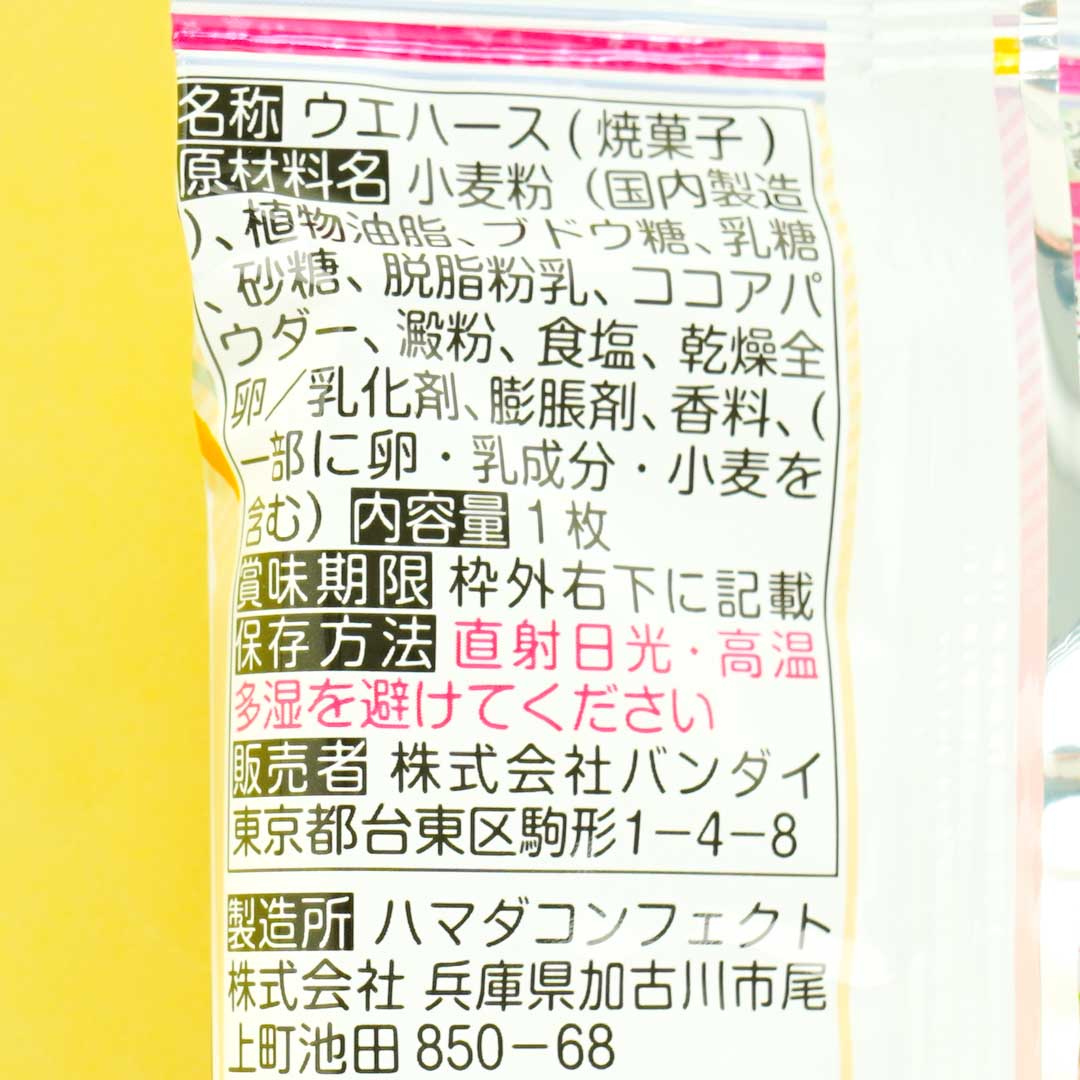 名称 ウエハース(焼菓子)
原材料名 小麦粉（国内製造
）、植物油脂、ブドウ糖、乳糖
、砂糖、脱脂粉乳、ココアパ
ウダー、澱粉、食塩、乾燥全
卵／乳化剤、膨脹剤、香料、(
一部に卵・乳成分・小麦を
含む） 内容量 1枚
賞味期限 枠外右下に記載
保存方法 直射日光・高温
多湿を避けてください
販売者 株式会社バンダイ
東京都台東区駒形1－4－8
製造所 ハマダコンフェクト
株式会社 兵庫県加古川市尾
上町池田850－68